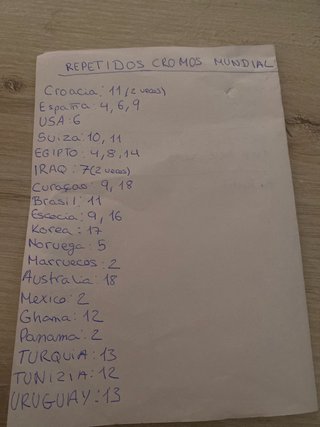 REPETIDOS CROMOS MUNDIAL
Croacia: 11 (2 veces)
España: 4, 6, 9
USA: 6
Suiza: 10, 11
EGIPTO: 4, 8, 14
IRAQ: 7 (2 veces)
Curaçao: 9, 18
Brasil: 11
Escocia: 9, 16
Korea: 17
Noruega: 5
Marruecos: 2
Australia: 18
Mexico: 2
Ghana: 12
Panama: 2
TURQUIA: 13
TUNIZIA: 12
URUGUAY: 13